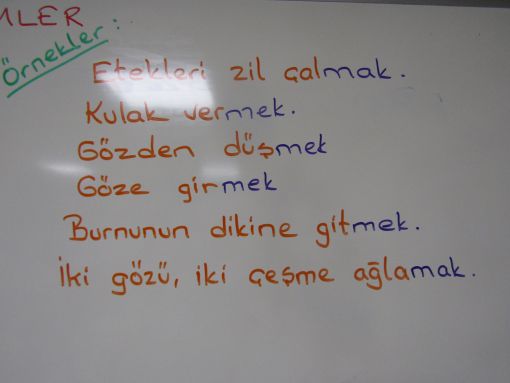 Örnekler:
Etekleri zil çalmak.
Kulak vermek.
Gözden düşmek
Göze girmek
Burnunun dikine gitmek.
İki gözü, iki çeşme ağlamak.